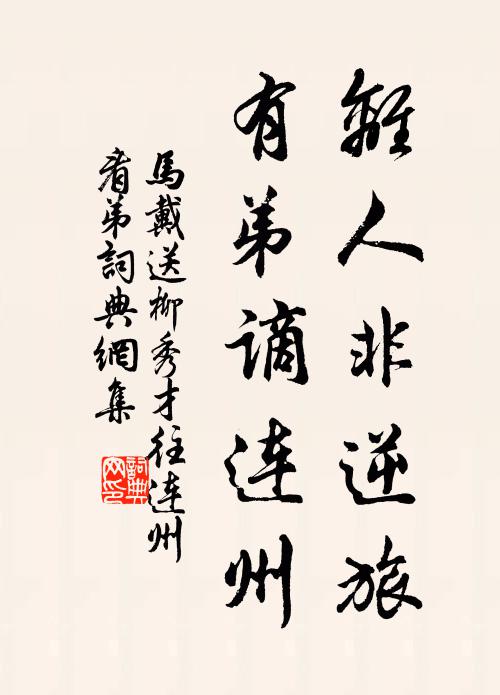 離人非逆旅
有弟謫連州
馬戴送柳秀才往連州
看弟詞典網集
詞典
网印